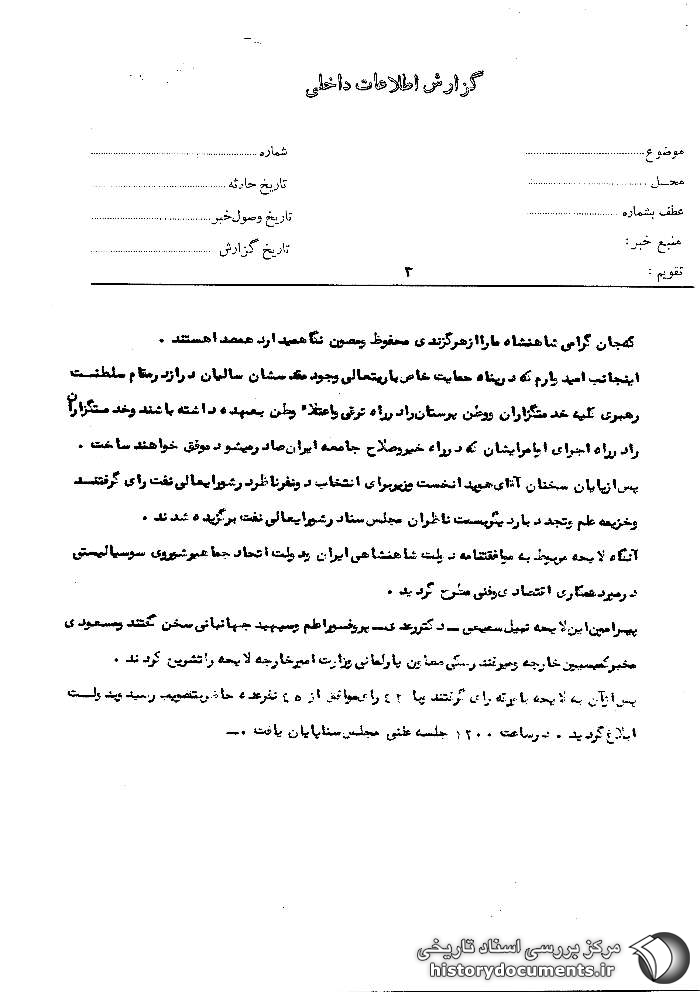 گزارش اطلاعات داخلی
موضوع
شماره
محل
تاریخ حادثه
عطف بشماره
تاریخ وصول خبر
منبع خبر:
تاریخ گزارش
تقویم :
۳
که جان گرامی شاهنشاه ما را از هر گزندی محفوظ و مصون نگاهمیدارد همصدا هستند .
اینجانب امیدوارم که در پناه حمایت خاص باریتعالی وجود مقدسشان سالیان دراز در مقام سلطنت
رهبری کلیه خدمتگزاران و وطن پرستان را در راه ترقی و اعتلاء وطن بعهده داشته باشند و خدمتگزاران
را در راه اجرای اوامرایشان که در راه خیر و صلاح جامعه ایران صادر میشود موفق خواهند ساخت .
پس از پایان سخنان آقای هویدا نخست وزیر برای انتخاب دو نفر ناظر در شورایعالی نفت رای گرفتند
و خزیمه علم و تجدد بار دیگر بسمت ناظران مجلس سنا در شورایعالی نفت برگزیده شدند .
آنگاه لایحه مربوط به موافقتنامه دولت شاهنشاهی ایران و دولت اتحاد جماهیر شوروی سوسیالیستی
در مورد همکاری اقتصادی و فنی مطرح گردید .
پیرامون این لایحه نبیل سمیعی ـ دکتر رعدی ـ پروفسور اعلم و سپهبد جهانبانی سخن گفتند و مسعودی
مخبر کمیسیون خارجه و میرفندرسکی معاون پارلمانی وزارت امور خارجه لایحه را تشریح کردند .
پس از آن به لایحه با ورقه رای گرفتند و با ۴۲ رای موافق از ۴۵ نفر عده حاضر بتصویب رسید و بدولت
ابلاغ گردید . در ساعت ۱۲۰۰ جلسه علنی مجلس سنا پایان یافت .ـ
مرکز بررسی اسناد تاریخی
historydocuments.ir